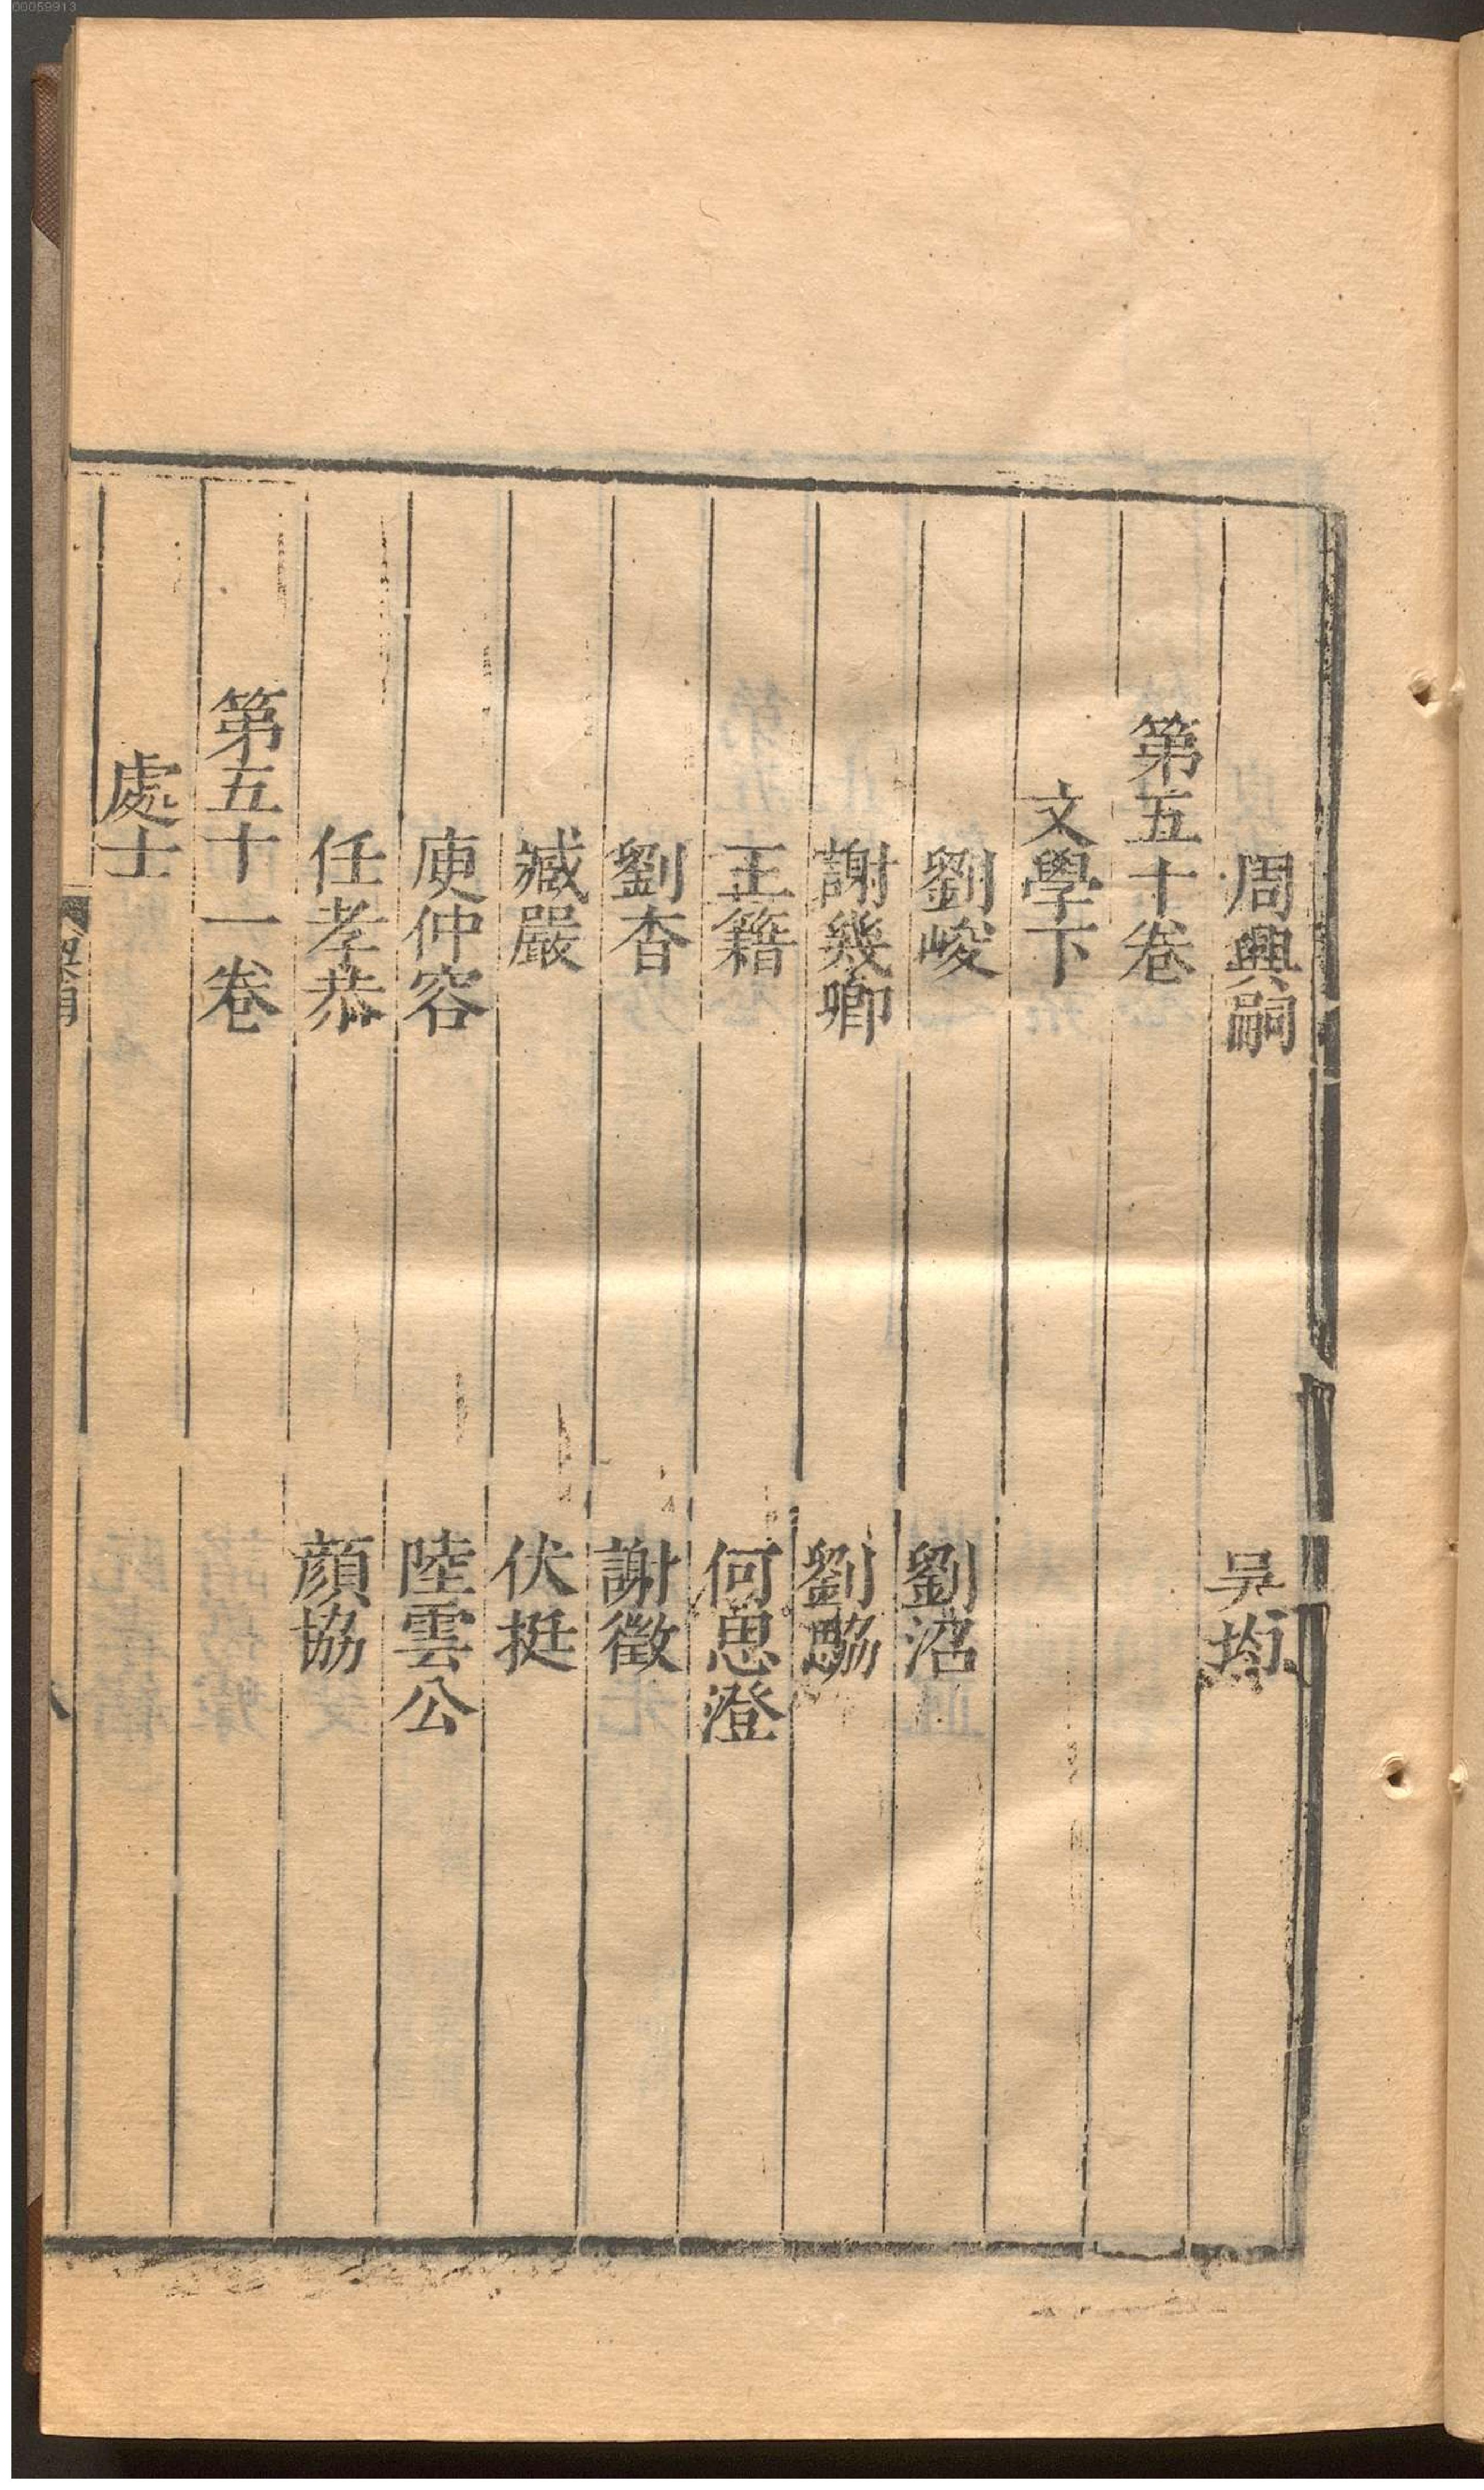 00059913
周興嗣　吳均
第五十卷
文學下
劉峻　劉沼
謝幾卿　劉勰
王籍　何思澄
劉杳　謝徵
臧嚴　伏挺
庾仲容　陸雲公
任孝恭　顔協
第五十一卷
處士